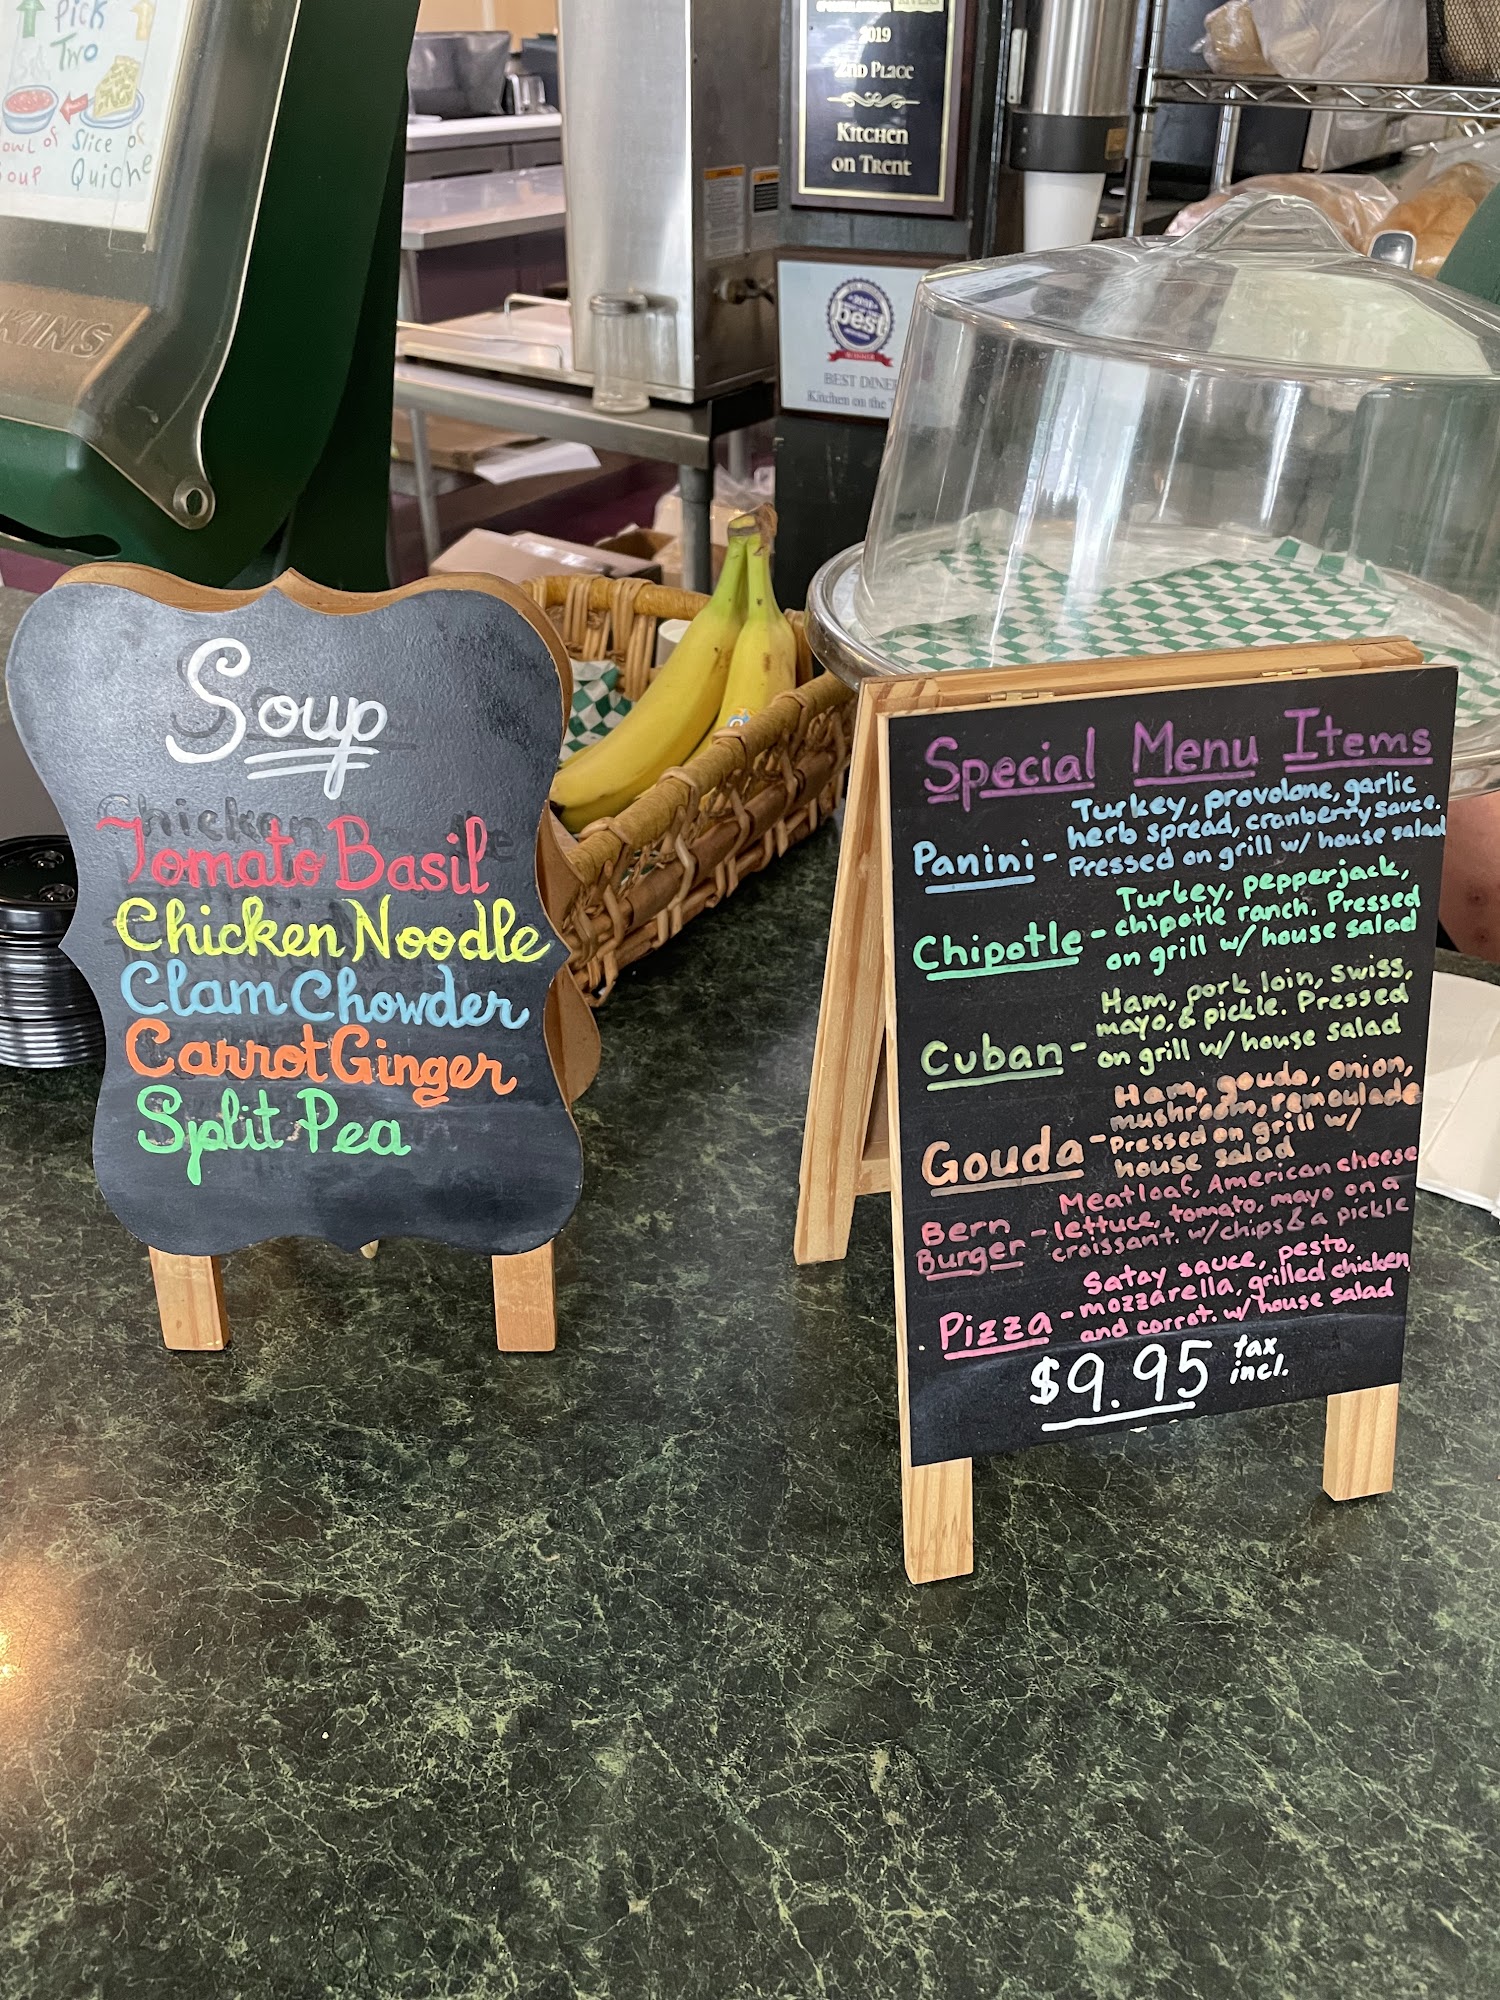 Pick
Two
Slice of
Quiche
KINS
2019
2nd Place
Kitchen
on Trent
best
BEST DINER
Kitchen on the
Soup
Tomato Basil
Chicken Noodle
Clam Chowder
Carrot Ginger
Split Pea
Special Menu Items
Panini - Turkey, provolone, garlic
herb spread, cranberry sauce.
Pressed on grill w/ house salad
Chipotle - Turkey, pepperjack,
chipotle ranch. Pressed
on grill w/ house salad
Cuban - Ham, pork loin, swiss,
mayo, & pickle. Pressed
on grill w/ house salad
Gouda - Ham, gouda, onion,
mushroom, remoulade
Pressed on grill w/
house salad
Bern Burger - Meatloaf, American cheese
lettuce, tomato, mayo on a
croissant. w/chips & a pickle
Pizza - Satay sauce, pesto,
mozzarella, grilled chicken,
and carrot. w/ house salad
$9.95 tax incl.